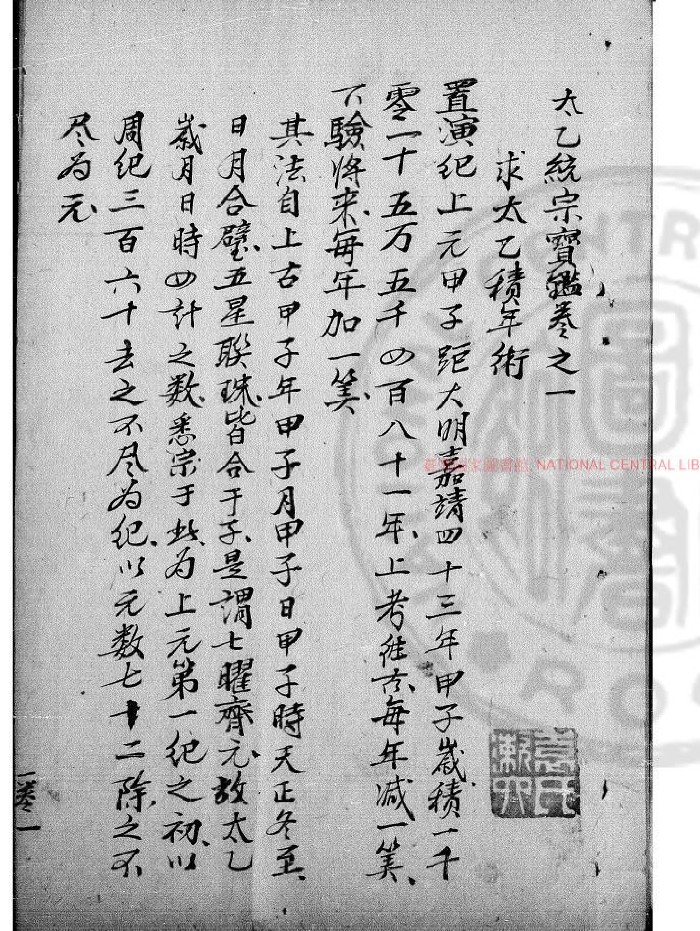 太乙統宗寶鑑卷之一
求太乙積年術
置演紀上元甲子距大明嘉靖四十三年甲子歲積一千
零一十五万五千四百八十一年上考往古每年减一筭
下驗将来每年加一筭
其法自上古甲子年甲子月甲子日甲子時天正冬至
日月合璧五星聯珠皆合于子是謂七曜齊元故太乙
歲月日時四計之数悉宗于此为上元第一纪之初以
周纪三百六十去之不尽为纪以元数七十二除之不
尽为元
卷一
NATIONAL CENTRAL LIB